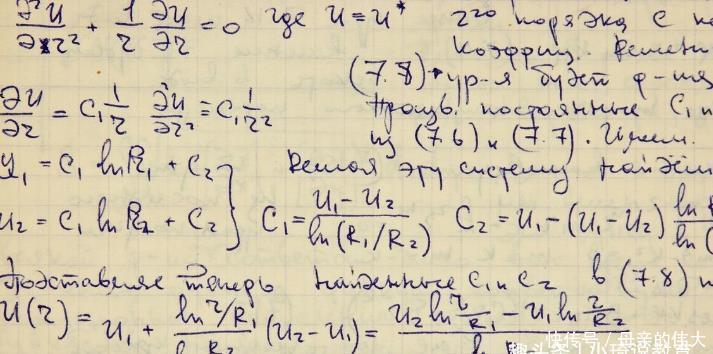 ∂²u/∂r² + 1/r ∂u/∂r = 0 где u ≡ u* 2го порядка с
коэффиц. Решени
(7.8) ур-я будет ф-ция
∂u/∂r = C₁ 1/r ∂u/∂r² ≡ C₁ 1/r² постоянные C₁ и
из (7.6) и (7.7). Имеем.
u₁ = C₁ ln R₁ + C₂ } Решая эту систему найдём
u₂ = C₁ ln R₂ + C₂ } C₁ = (u₁ − u₂)/ln(R₁/R₂) C₂ = u₁ − (u₁ − u₂) ln R / ln(
Подставляя теперь найденные C₁ и C₂ в (7.8) п
u(r) = u₁ + ln r/R₁ / R₂ (u₂ − u₁) = u₂ ln r/R₁ − u₁ ln r/R₂
快传号/母亲的伟大